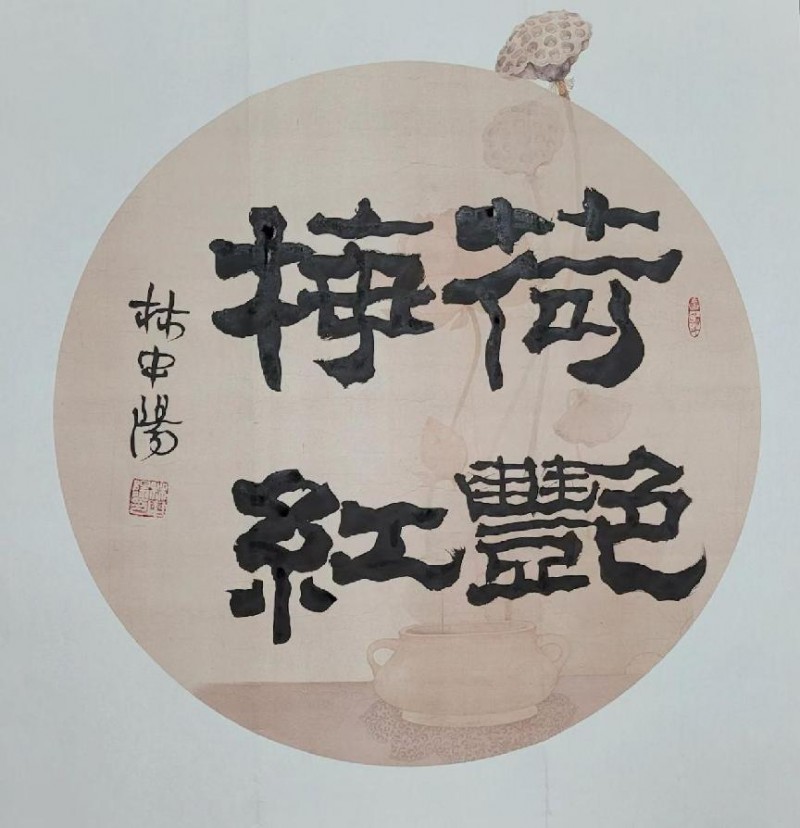 荷艷
梅紅
林中陽